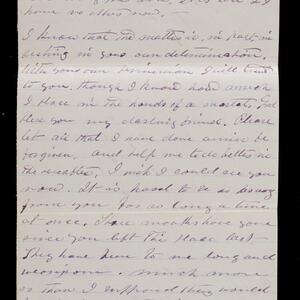 have no others now.
I know that the matter is, in part, in
in your own determination.
With your own permission I will trust
to you, though I know how much
I place in the hands of a mortal. God
bless you my darling friend. Please
let all that I have done amiss be
forgiven, and help me to do better in
the I wish I could see you
now. It is hard to be so away
from you for so long a time
at once. Three months have gone
since you left this place last—
They have been to me long and
wearisome. much more
so than I supposed they would